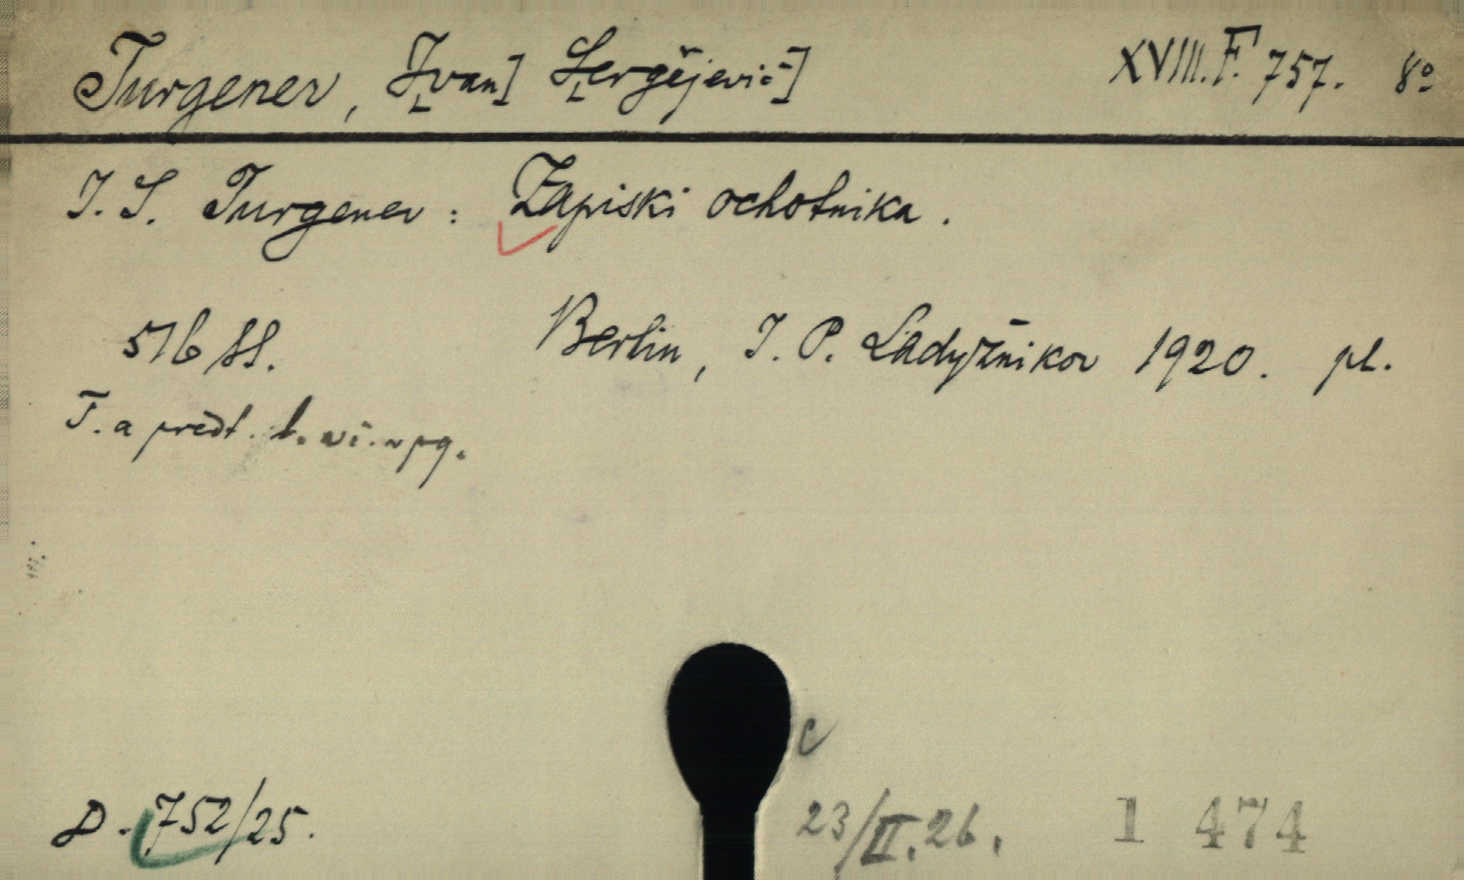 Turgenev, I[van] S[ergějevič] XVIII.F. 757. 8º
I. S. Turgenev: Zapiski ochotnika.
516 ss. Berlin, I. P. Ladyžnikov 1920. pl.
T. a předt.
c
D. 752/25. 23/II.26. 1 474